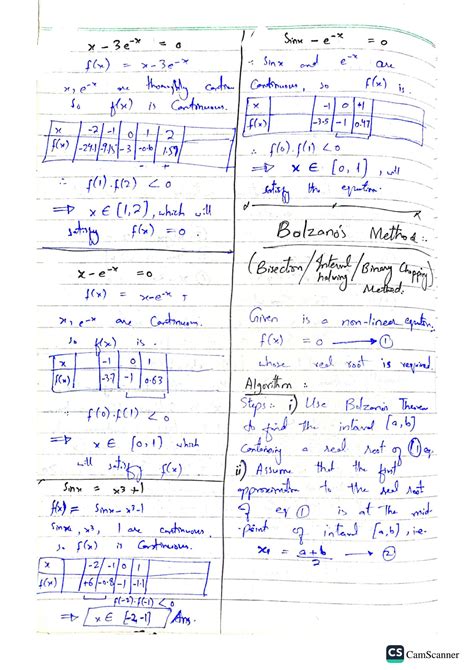 x - 3e⁻ˣ = 0
f(x) = x - 3e⁻ˣ
x, e⁻ˣ are thoroughly
so f(x) is Continuous.
x | -2 | -1 | 0 | 1 | 2
f(x) | -24.1 | -9.15 | -3 | -0.6 | 1.59
- +
∴ f(1).f(2) < 0
⇒ x ∈ [1,2], which will
satisfy f(x) = 0.
x - e⁻ˣ = 0
f(x) = x-e⁻ˣ
x, e⁻ˣ are Continuous.
so f(x) is .
x | | -1 | 0 | 1
f(x) | | -3.7 | -1 | 0.63
f(0).f(1) < 0
⇒ x ∈ [0,1] which
will satisfy f(x)
Sinx = x³+1
f(x) = Sinx - x³-1
Sinx, x³, 1 are continuous.
so f(x) is Continuous.
x | -2 | -1 | 0 | 1
f(x) | +6 | -0.8 | -1 | -1.1
f(-2).f(-1) < 0
⇒ x ∈ [-2,-1] Ans.
Sinx - e⁻ˣ = 0
∴ Sinx and e⁻ˣ are
Continuous, so f(x) is
x | | -1 | 0 | +1
f(x) | | -3.5 | -1 | 0.47
∴ f(0).f(1) < 0
⇒ x ∈ [0,1], will
satisfy the equation.
Bolzano's Method:
(Bisection/Interval halving/Binary Chopping
Method.
Given is a non-linear equation.
f(x) = 0 → ①
whose real root is required.
Algorithm :
Steps:- i) Use Bolzano's Theorem
to find the interval [a,b]
Containing a real root of ① eq.
ii) Assume that the first
approximation to the real root
of eq ① is at the mid-
point of interval [a,b], i.e.
x₁ = a+b/2 → ②
CS CamScanner